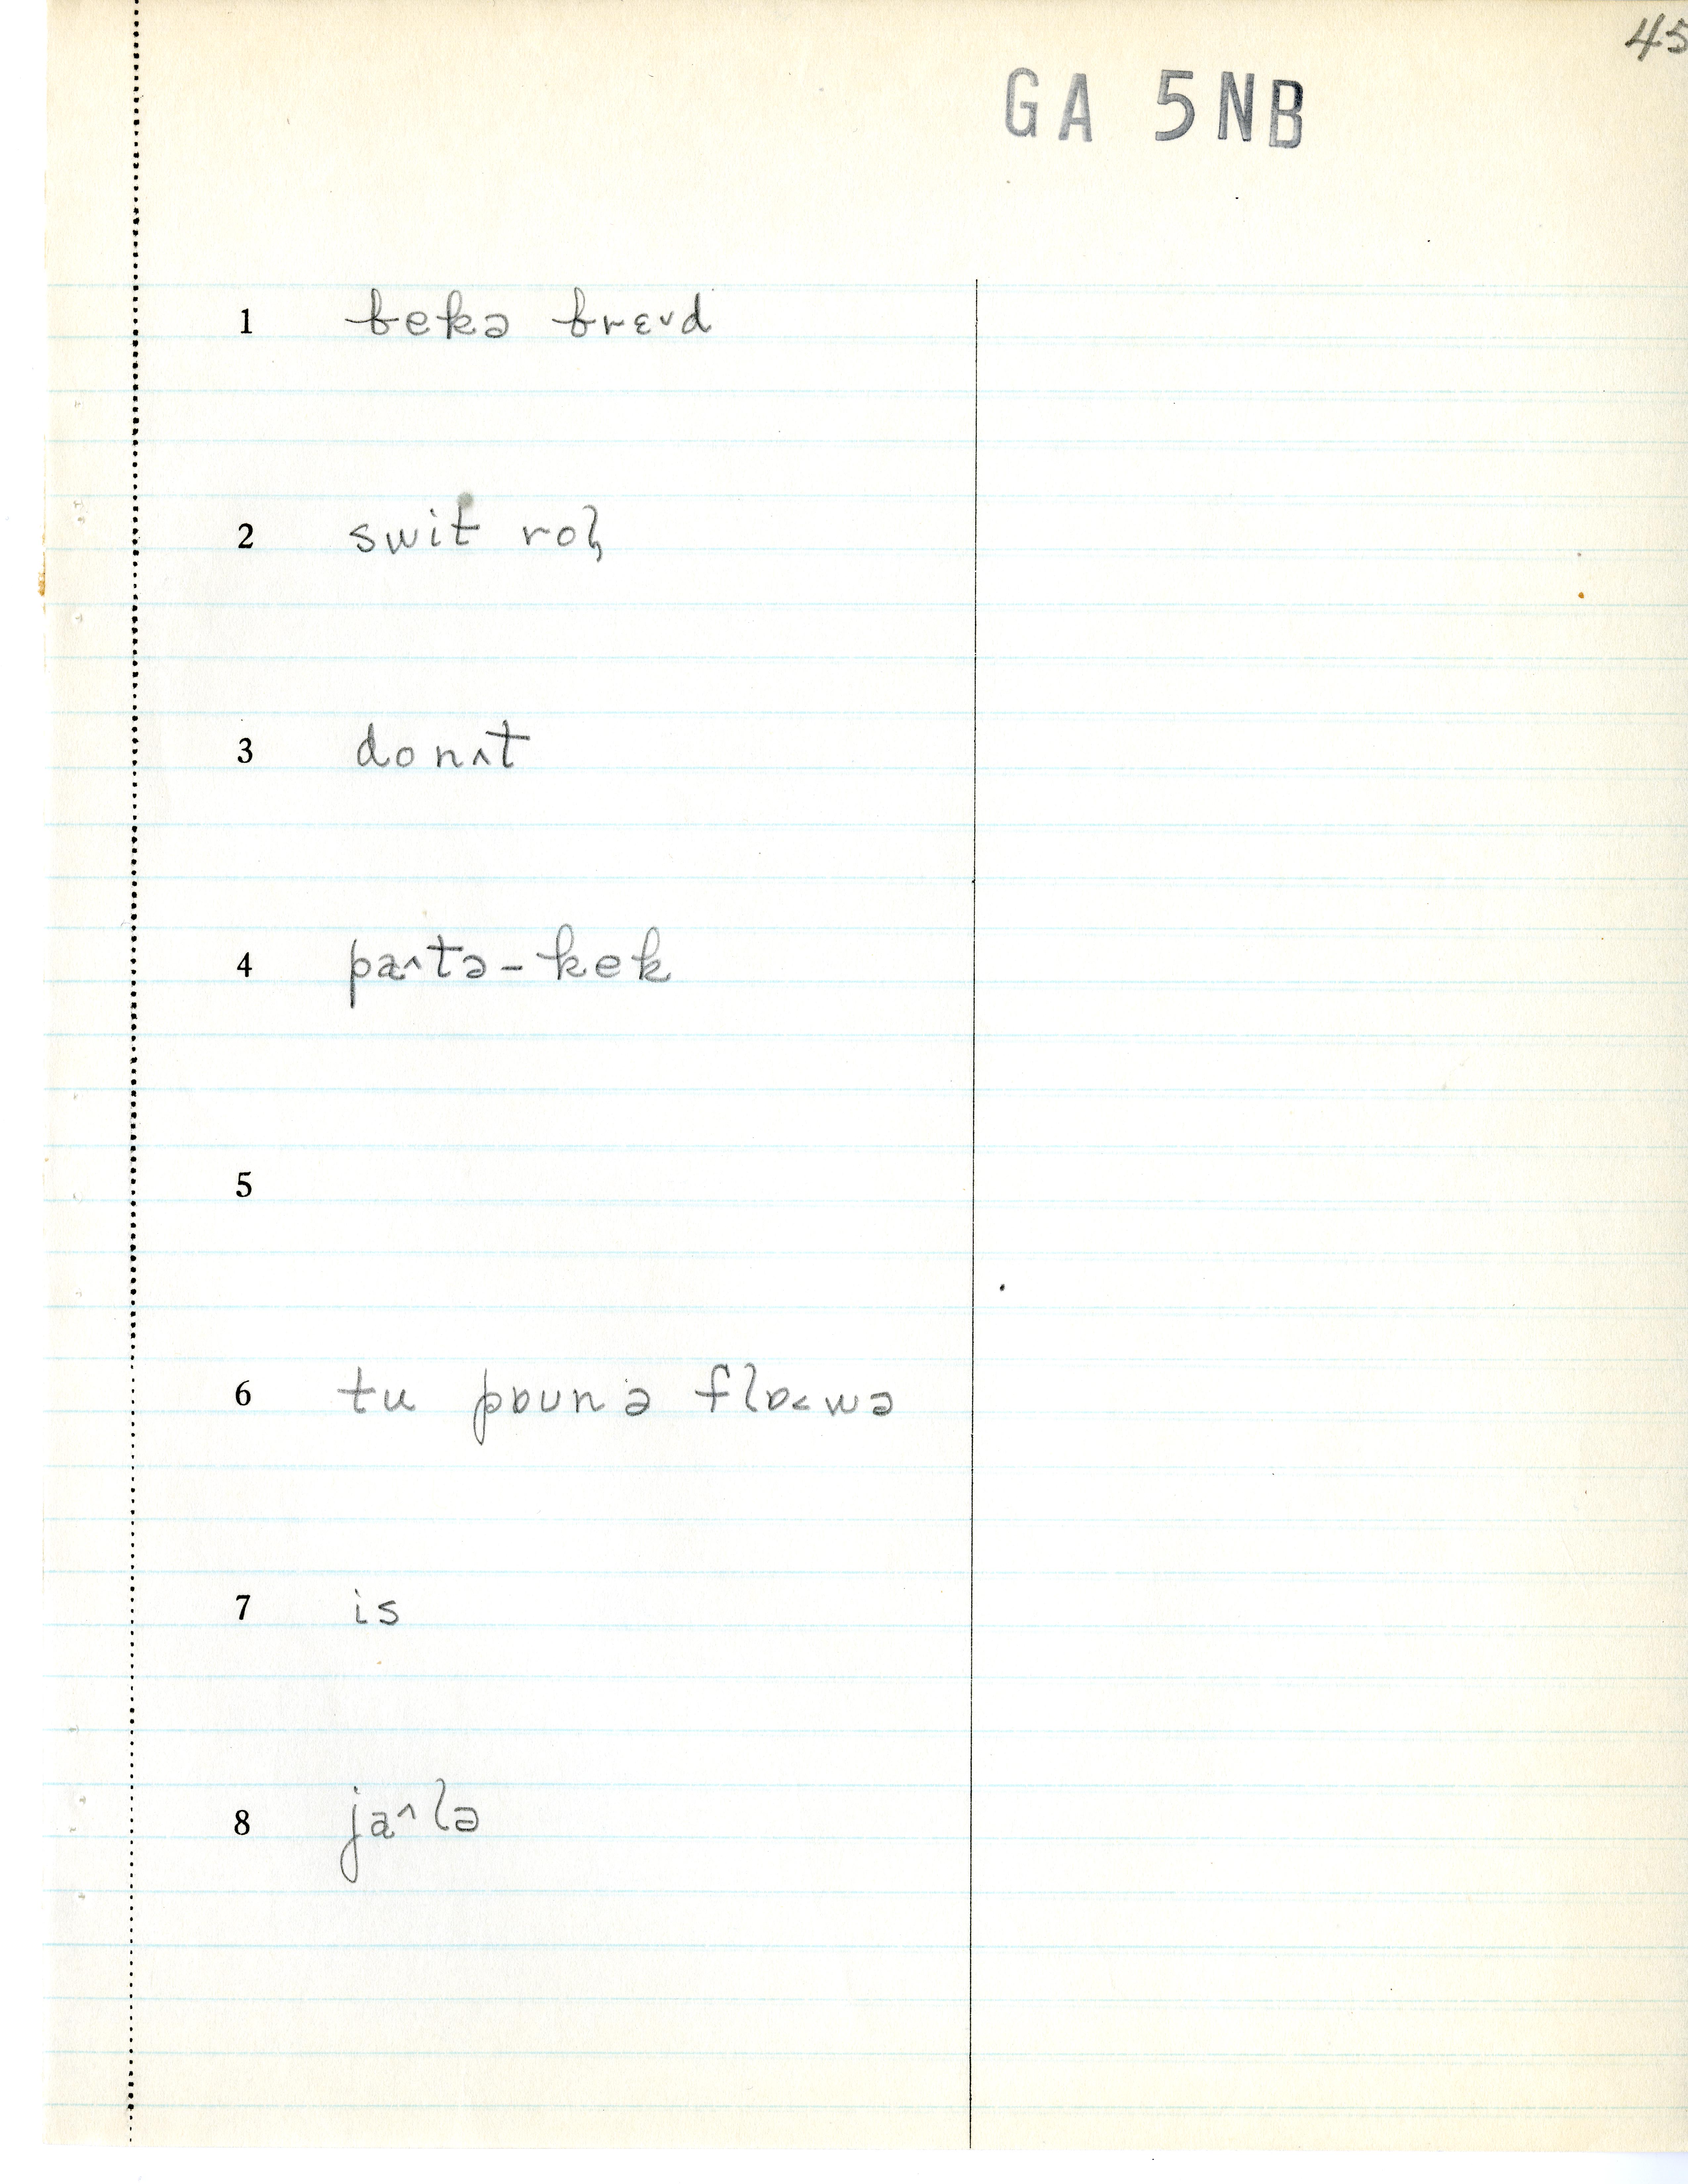 45
GA 5NB
1 bekə brɛ˅d
2 swit rol̥
3 donʌt
4 pa˄tə-kek
5
6 tu pɒunə flɒ˂wə
7 is
8 ja˄lə